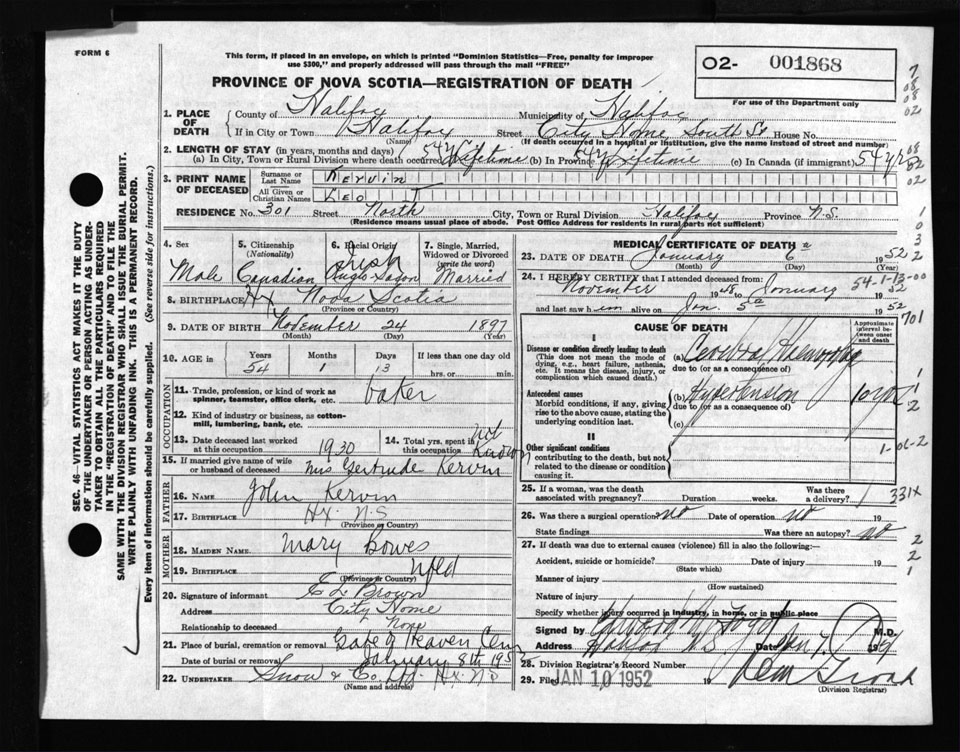 FORM 6
This form, if placed in an envelope, on which is printed "Dominion Statistics—Free, penalty for improper
use $300," and properly addressed will pass through the mail "FREE"
PROVINCE OF NOVA SCOTIA—REGISTRATION OF DEATH
O2- 001868
For use of the Department only
1. PLACE OF DEATH
County of Halifax Municipality of Halifax
If in City or Town Halifax Street City Home, South St House No.
(Name) (If death occurred in a hospital or institution, give the name instead of street and number)
2. LENGTH OF STAY (in years, months and days)
(a) In City, Town or Rural Division where death occurred 54 yr Lifetime (b) In Province 54 yr Lifetime (c) In Canada (if immigrant) 54 yr
3. PRINT NAME OF DECEASED
Surname or Last Name Kervin
All Given or Christian Names Leo T
RESIDENCE No. 301 Street North City, Town or Rural Division Halifax Province N.S.
(Residence means usual place of abode. Post Office Address for residents in rural parts not sufficient)
4. Sex 5. Citizenship (Nationality) 6. Racial Origin 7. Single, Married, Widowed or Divorced (write the word)
Male Canadian Irish Married
8. BIRTHPLACE Hx Nova Scotia
(Province or Country)
9. DATE OF BIRTH November 24 1897
(Month) (Day) (Year)
10. AGE in Years Months Days If less than one day old
54 1 13 hrs. or min.
OCCUPATION
11. Trade, profession, or kind of work as
spinner, teamster, office clerk, etc. baker
12. Kind of industry or business, as cotton-
mill, lumbering, bank, etc.
13. Date deceased last worked
at this occupation 1930
14. Total yrs. spent in
this occupation Not Known
15. If married give name of wife
or husband of deceased Mrs Gertrude Kervin
FATHER
16. NAME John Kervin
17. BIRTHPLACE Hx. N.S
(Province or Country)
MOTHER
18. MAIDEN NAME. Mary Bowes
19. BIRTHPLACE Nfld
(Province or Country)
20. Signature of informant E L Brown
Address City Home
Relationship to deceased None
21. Place of burial, cremation or removal Gate of Heaven Cem
Date of burial or removal January 8th 195
22. UNDERTAKER Snow & Co. Ltd. Hx. N.S
(Name and address)
MEDICAL CERTIFICATE OF DEATH
23. DATE OF DEATH January 6 1952
(Month) (Day) (Year)
24. I HEREBY CERTIFY that I attended deceased from:
November 1948 to January 1952
and last saw him alive on Jan. 5 1952
CAUSE OF DEATH
Approximate interval between onset and death
I
Disease or condition directly leading to death
(This does not mean the mode of
dying, e.g., heart failure, asthenia,
etc. It means the disease, injury, or
complication which caused death.)
(a)
due to (or as a consequence of)
Antecedent causes
Morbid conditions, if any, giving
rise to the above cause, stating the
underlying condition last.
(b) Hypertension 10 yrs
due to (or as a consequence of)
(c)
II
Other significant conditions
contributing to the death, but not
related to the disease or condition
causing it.
25. If a woman, was the death
associated with pregnancy? Duration weeks. Was there a delivery?
26. Was there a surgical operation no Date of operation no 19
State findings Was there an autopsy? no
27. If death was due to external causes (violence) fill in also the following:—
Accident, suicide or homicide? Date of injury 19
(State which)
Manner of injury
(How sustained)
Nature of injury
Specify whether injury occurred in industry, in home, or in public place
Signed by M.D.
Address Halifax N.S Date Jan 7
28. Division Registrar's Record Number
29. Filed JAN 10 1952 19
(Division Registrar)
54-1-13-00
701
1-01-2
331X
SEC. 46—VITAL STATISTICS ACT MAKES IT THE DUTY
OF THE UNDERTAKER OR PERSON ACTING AS UNDER-
TAKER TO OBTAIN ALL THE PARTICULARS REQUIRED
IN THE "REGISTRATION OF DEATH" AND TO FILE THE
SAME WITH THE DIVISION REGISTRAR WHO SHALL ISSUE THE BURIAL PERMIT.
WRITE PLAINLY WITH UNFADING INK. THIS IS A PERMANENT RECORD.
Every item of information should be carefully supplied. (See reverse side for instructions.)